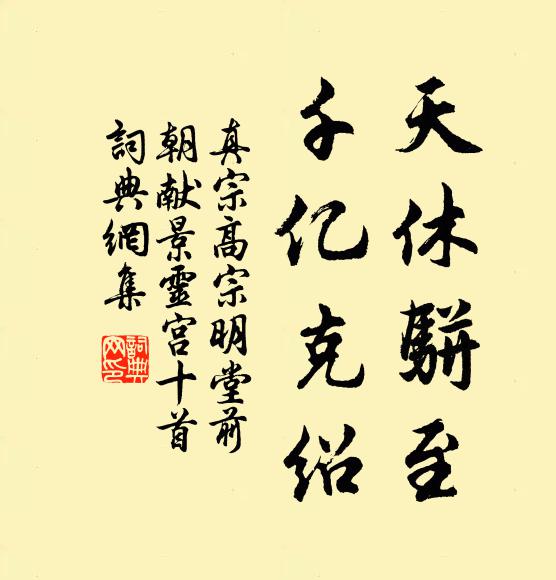 天休駢至
千亿克绍
真宗高宗明堂前
朝献景靈宫十首
詞典網集
詞典網印